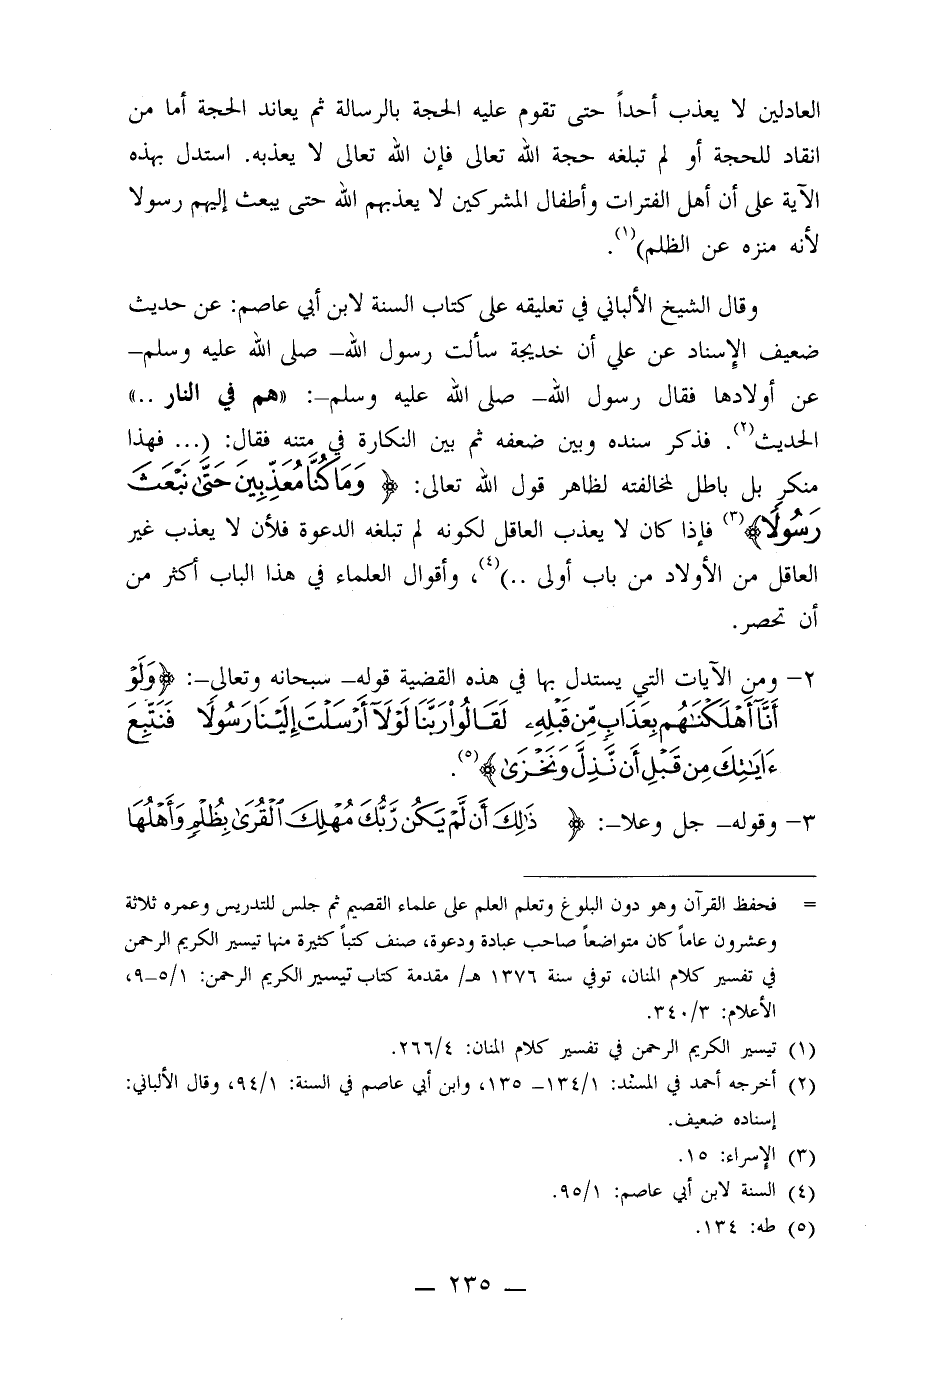 العادلين لا يعذب أحداً حتى تقوم عليه الحجة بالرسالة ثم يعاند الحجة أما من
انقاد للحجة أو لم تبلغه حجة الله تعالى فإن الله تعالى لا يعذبه. استدل بهذه
الآية على أن أهل الفترات وأطفال المشركين لا يعذبهم الله حتى يبعث إليهم رسولا
لأنه منزه عن الظلم)(١).
وقال الشيخ الألباني في تعليقه على كتاب السنة لابن أبي عاصم: عن حديث
ضعيف الإسناد عن علي أن خديجة سألت رسول الله– صلى الله عليه وسلم–
عن أولادها فقال رسول الله– صلى الله عليه وسلم–: «هم في النار ..»
الحديث(٢). فذكر سنده وبين ضعفه ثم بين النكارة في متنه فقال: (... فهذا
منكر بل باطل لمخالفته لظاهر قول الله تعالى: ﴿ وَمَا كُنَّا مُعَذِّبِينَ حَتَّىٰ نَبْعَثَ
رَسُولًا﴾(٣) فإذا كان لا يعذب العاقل لكونه لم تبلغه الدعوة فلأن لا يعذب غير
العاقل من الأولاد من باب أولى ..)(٤)، وأقوال العلماء في هذا الباب أكثر من
أن تحصر.
٢– ومن الآيات التي يستدل بها في هذه القضية قوله– سبحانه وتعالى–: ﴿وَلَوْ
أَنَّآ أَهْلَكْنَٰهُم بِعَذَابٍ مِّن قَبْلِهِۦ لَقَالُوا۟ رَبَّنَا لَوْلَآ أَرْسَلْتَ إِلَيْنَا رَسُولًا فَنَتَّبِعَ
ءَايَٰتِكَ مِن قَبْلِ أَن نَّذِلَّ وَنَخْزَىٰ﴾(٥).
٣– وقوله– جل وعلا–: ﴿ ذَٰلِكَ أَن لَّمْ يَكُن رَّبُّكَ مُهْلِكَ ٱلْقُرَىٰ بِظُلْمٍ وَأَهْلُهَا
= فحفظ القرآن وهو دون البلوغ وتعلم العلم على علماء القصيم ثم جلس للتدريس وعمره ثلاثة
وعشرون عاماً كان متواضعاً صاحب عبادة ودعوة، صنف كتباً كثيرة منها تيسير الكريم الرحمن
في تفسير كلام المنان، توفي سنة ١٣٧٦ هـ/ مقدمة كتاب تيسير الكريم الرحمن: ٥/١–٩،
الأعلام: ٣٤٠/٣.
(١) تيسير الكريم الرحمن في تفسير كلام المنان: ٢٦٦/٤.
(٢) أخرجه أحمد في المسند: ١٣٤/١– ١٣٥، وابن أبي عاصم في السنة: ٩٤/١، وقال الألباني:
إسناده ضعيف.
(٣) الإسراء: ١٥.
(٤) السنة لابن أبي عاصم: ٩٥/١.
(٥) طه: ١٣٤.
— ٢٣٥ —